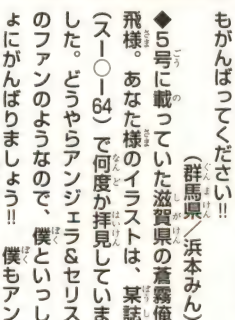 もがんばってください!!
(群馬県/浜本みん)
◆5号に載っていた滋賀県の蒼霧俺
飛様。あなた様のイラストは、某誌
(スー○ー64)で何度か拝見していま
した。どうやらアンジェラ&セリス
のファンのようなので、僕といっし
ょにがんばりましょう!! 僕もアン